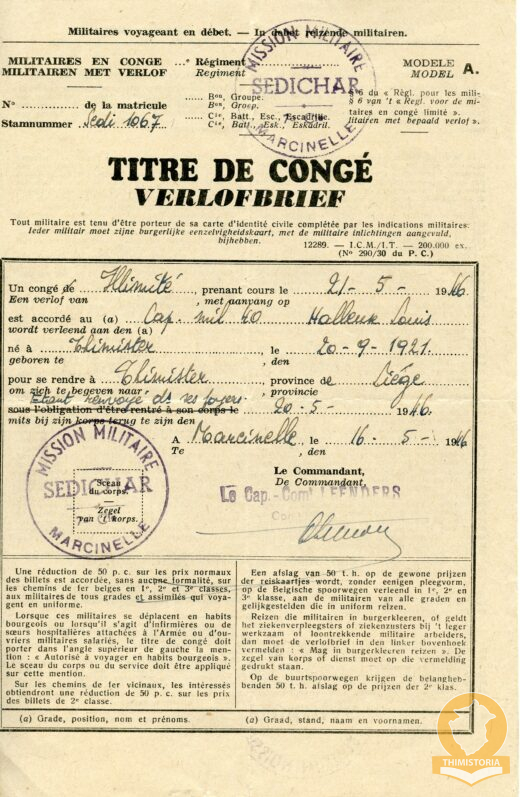 Militaires voyageant en débet. — In debet reizende militairen.
MILITAIRES EN CONGE
MILITAIREN MET VERLOF
...e Régiment
Regiment
MODELE
MODEL A.
MISSION MILITAIRE
SEDICHAR
MARCINELLE
N° ........... de la matricule
Stamnummer Sedi 1067
Bon, Groupe.
Bon, Groep.
Cie, Batt., Esc., Escadrille.
Cie, Batt., Esk., Eskadril.
§ 6 du « Règl. pour les mili-
taires en congé limité ».
§ 6 van 't « Regl. voor de mi-
litairen met bepaald verlof ».
TITRE DE CONGÉ
VERLOFBRIEF
Tout militaire est tenu d'être porteur de sa carte d'identité civile complétée par les indications militaires.
Ieder militair moet zijne burgerlijke eenzelvigheidskaart, met de militaire inlichtingen aangevuld,
bijhebben.
12289. — I.C.M./I.T. — 200.000 ex.
(N° 290/30 du P. C.)
Un congé de Illimité, prenant cours le 21 - 5 - 1946
Een verlof van , met aanvang op
est accordé au (a) Cap. mil 40 Louis
wordt verleend aan den (a)
né à Thimister, le 20-9-1921.
geboren te , den
pour se rendre à Thimister, province de Liége
om zich te begeven naar , provincie
Etant renvoyé ds ses foyers
sous l'obligation d'être rentré à son corps le 20.5- 1946.
mits bij zijn korps terug te zijn den
A Marcinelle, le 16 - 5 - 1946
Te , den
MISSION MILITAIRE
SEDICHAR
MARCINELLE
Sceau
du corps.
Zegel
van 't korps.
Le Commandant,
De Commandant,
Le Cap.-Comt LEENDERS
Une réduction de 50 p. c. sur les prix normaux
des billets est accordée, sans aucune formalité, sur
les chemins de fer belges en 1e, 2e et 3e classes,
aux militaires de tous grades et assimilés qui voya-
gent en uniforme.
Lorsque ces militaires se déplacent en habits
bourgeois ou lorsqu'il s'agit d'infirmières ou de
sœurs hospitalières attachées à l'Armée ou d'ou-
vriers militaires salariés, le titre de congé doit
porter dans l'angle supérieur de gauche la men-
tion : « Autorisé à voyager en habits bourgeois ».
Le sceau du corps ou du service doit être appliqué
sur cette mention.
Sur les chemins de fer vicinaux, les intéressés
obtiendront une réduction de 50 p. c. sur les prix
des billets de 2e classe.
Een afslag van 50 t. h. op de gewone prijzen
der reiskaartjes wordt, zonder eenigen pleegvorm,
op de Belgische spoorwegen verleend in 1e, 2e en
3e klasse, aan de militairen van alle graden en
gelijkgestelden die in uniform reizen.
Reizen die militairen in burgerkleeren, of geldt
het ziekenverpleegsters of ziekenzusters bij 't leger
werkzaam of loontrekkende militaire arbeiders,
dan moet de verlofbrief in den linker bovenhoek
vermelden : « Mag in burgerkleeren reizen ». De
zegel van korps of dienst moet op die vermelding
gedrukt staan.
Op de buurtspoorwegen krijgen de belangheb-
benden 50 t. h. afslag op de prijzen der 2e klas.
(a) Grade, position, nom et prénoms.
(a) Graad, stand, naam en voornamen.
THIMISTORIA